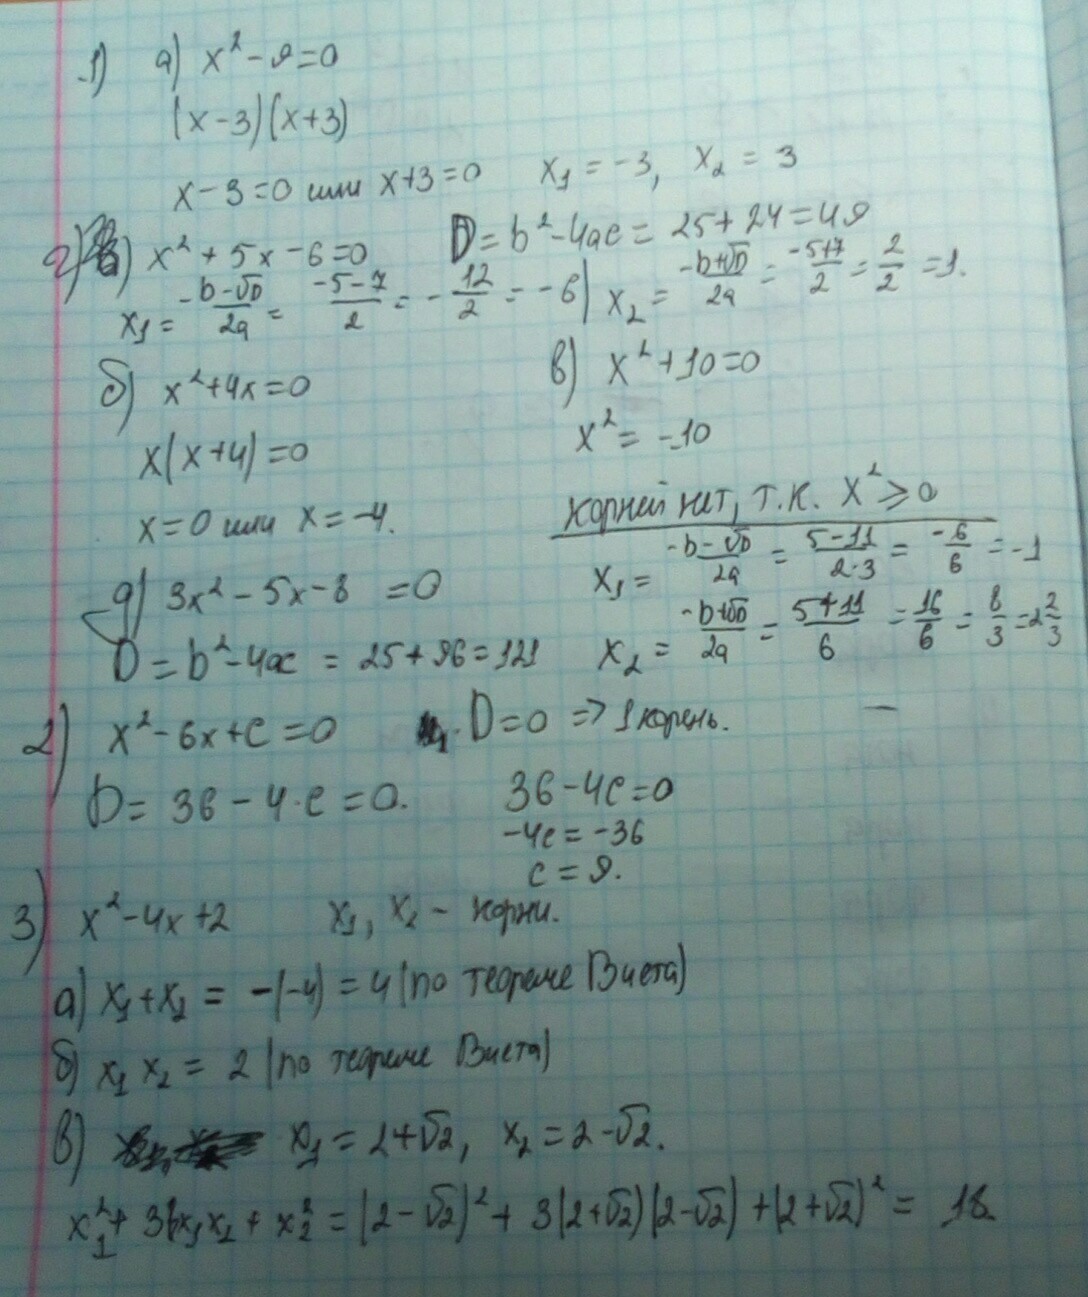 1) а) x² - 9 = 0
(x-3)(x+3)
x-3=0 или x+3=0 x₁ = -3, x₂ = 3
г) x² + 5x - 6 = 0 D = b² - 4ac = 25 + 24 = 49
x₁ = (-b-√D)/2a = (-5-7)/2 = -12/2 = -6 | x₂ = (-b+√D)/2a = (-5+7)/2 = 2/2 = 1.
б) x² + 4x = 0
x(x+4) = 0
x = 0 или x = -4.
в) x² + 10 = 0
x² = -10
корней нет, т.к. x² ≥ 0
д) 3x² - 5x - 8 = 0
D = b² - 4ac = 25 + 96 = 121
x₁ = (-b-√D)/2a = (5-11)/(2·3) = -6/6 = -1
x₂ = (-b+√D)/2a = (5+11)/6 = 16/6 = 8/3 = 2 2/3
2) x² - 6x + c = 0 D = 0 => 1 корень.
D = 36 - 4·c = 0.
36 - 4c = 0
-4c = -36
c = 9.
3) x² - 4x + 2 x₁, x₂ - корни.
а) x₁ + x₂ = -(-4) = 4 (по теореме Виета)
б) x₁ x₂ = 2 (по теореме Виета)
в) x₁ = 2+√2, x₂ = 2-√2.
x₁² + 3x₁x₂ + x₂² = (2-√2)² + 3(2+√2)(2-√2) + (2+√2)² = 18